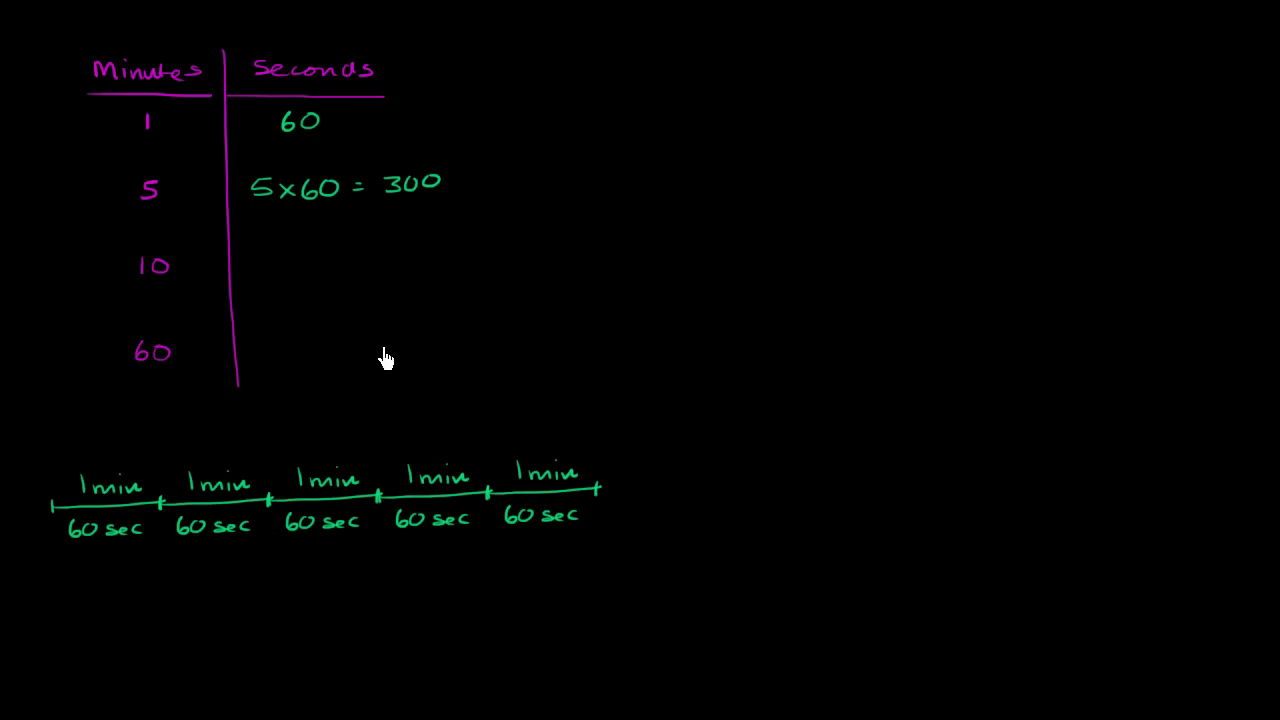 Minutes Seconds
1 60
5 5x60 = 300
10
60
1 min 1 min 1 min 1 min 1 min
60 sec 60 sec 60 sec 60 sec 60 sec